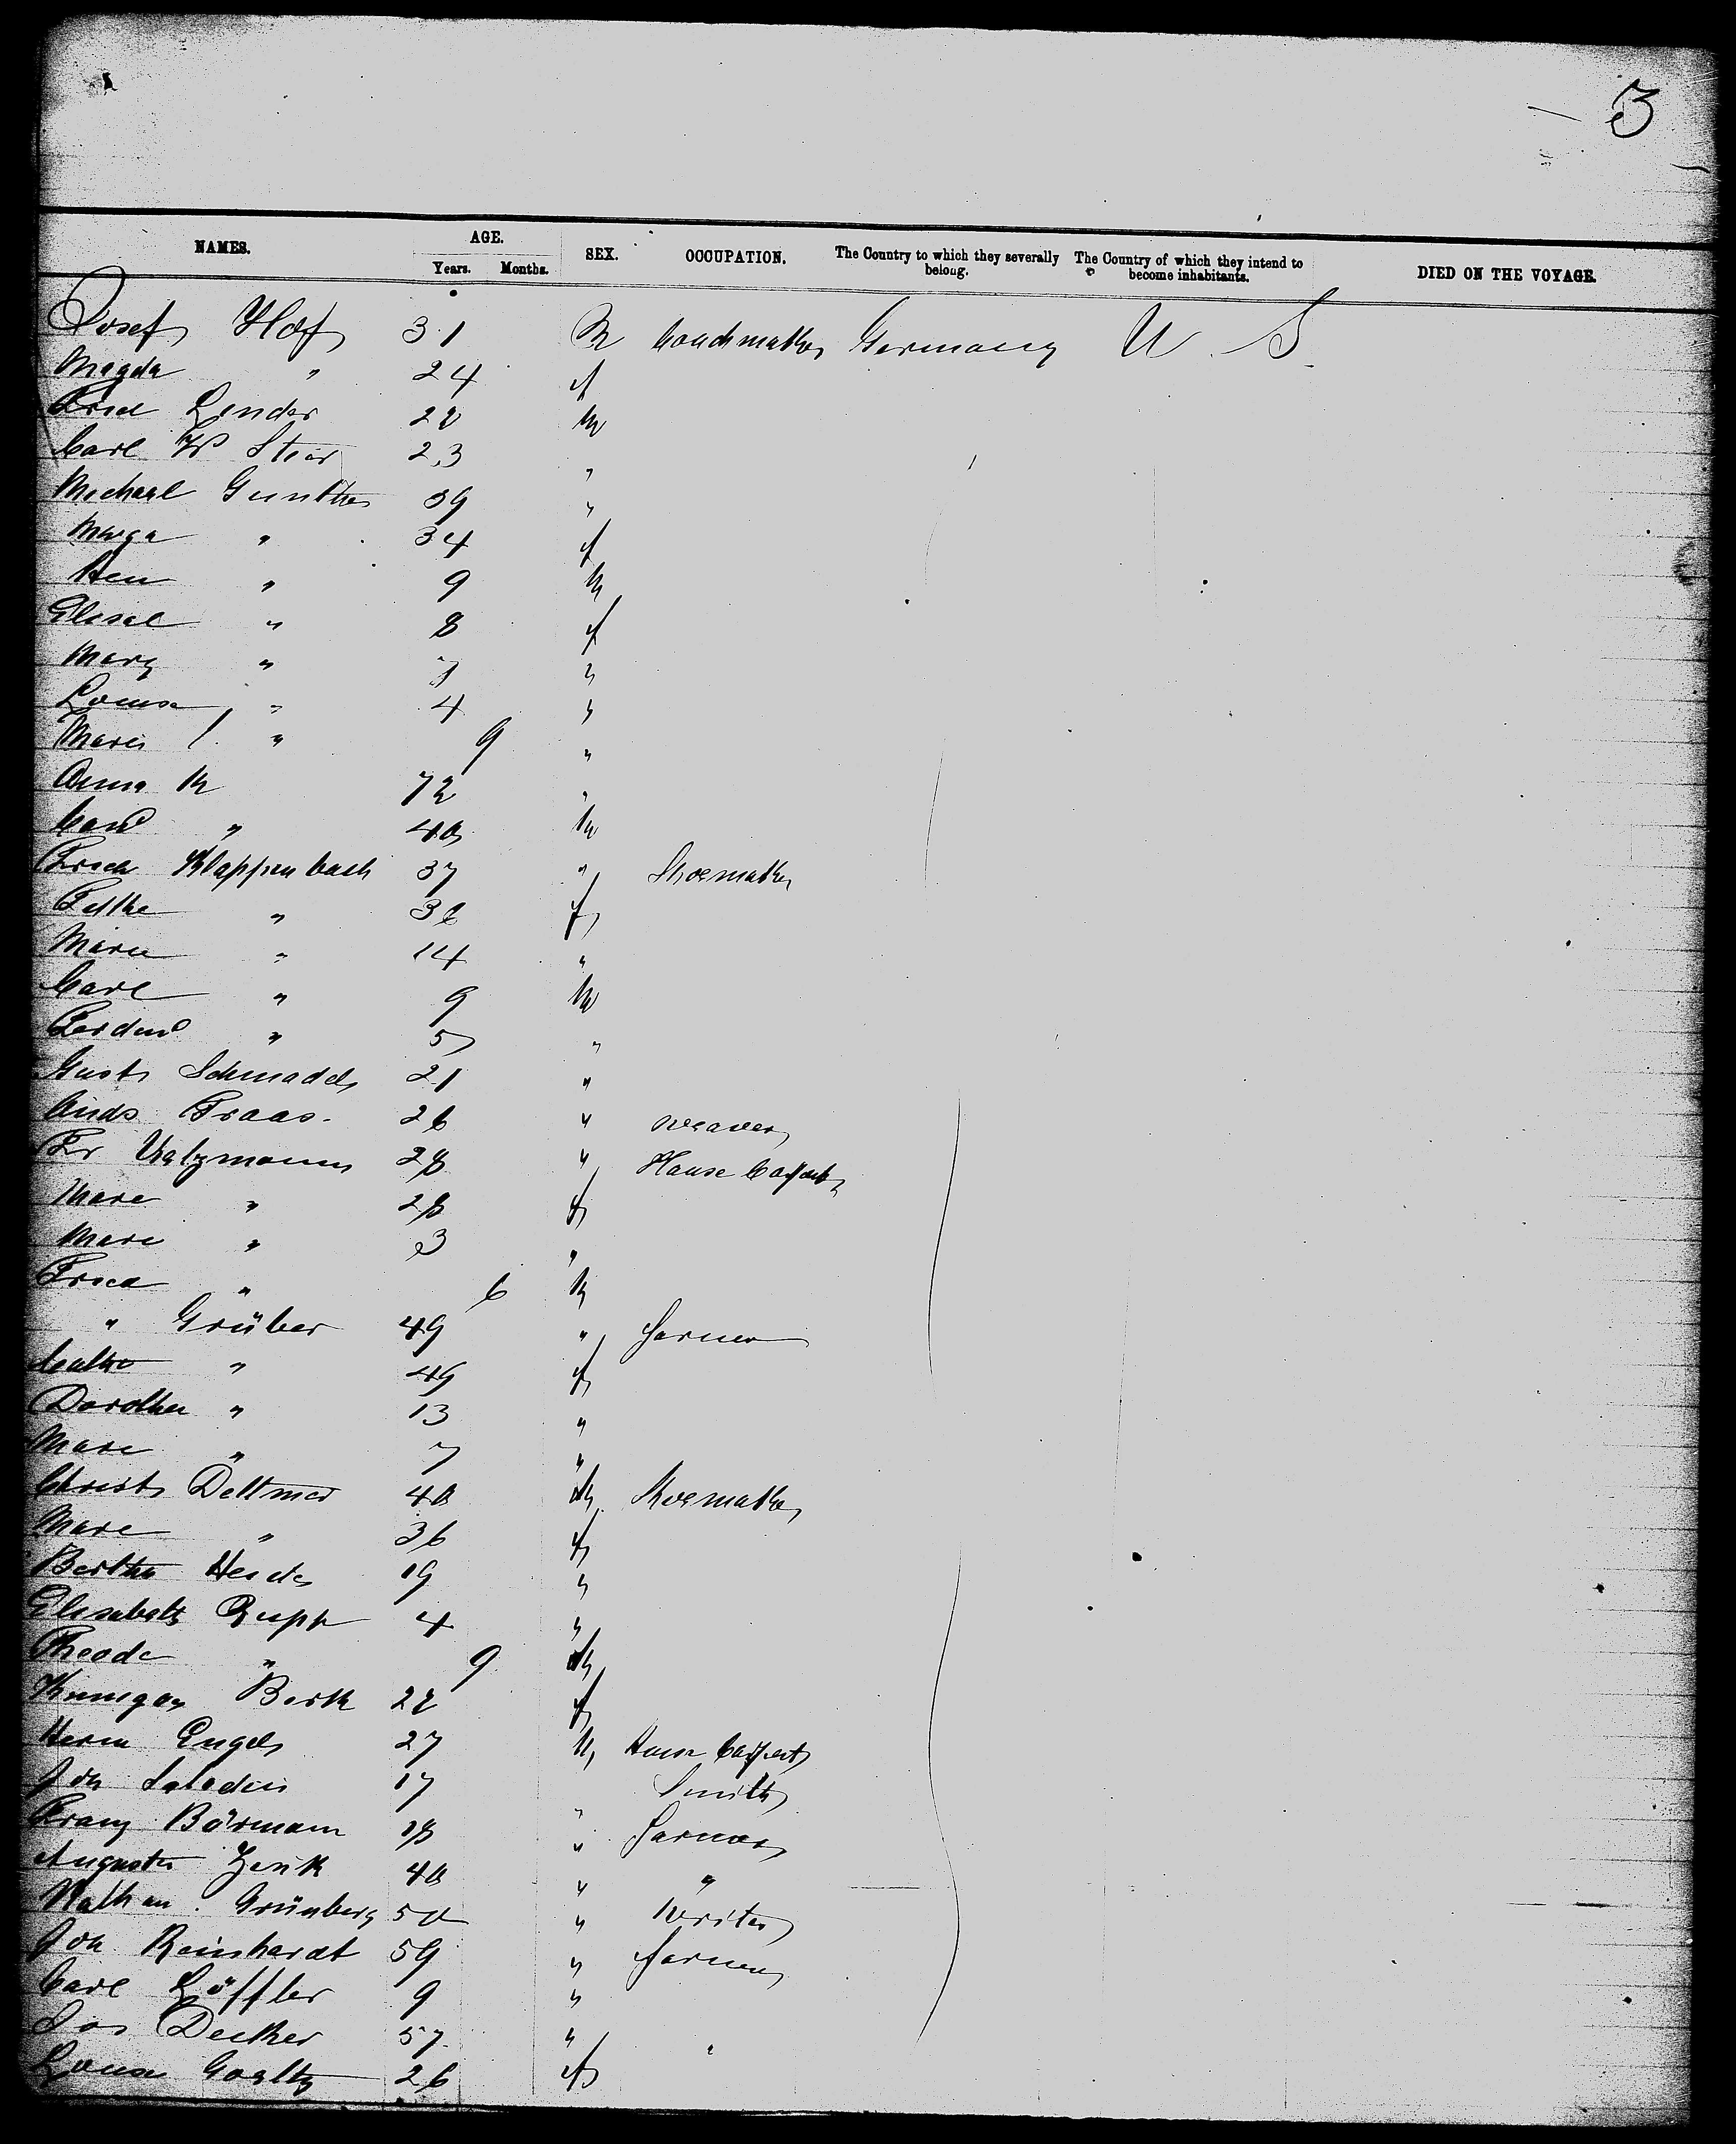 3
NAMES. AGE. SEX. OCCUPATION. The Country to which they severally belong. The Country of which they intend to become inhabitants. DIED ON THE VOYAGE.
Years. Months.
Josef Hof 31 M Coachmaker Germany U. S.
Magda " 24 f
Fried Linder 22 M
Carl W Stier 23 "
Michael Gunther 39 "
Marga " 34 f
Hen " 9 M
Elise " 8 f
Marg " 7 "
Louise " 4 "
Marie " 9 "
Anna M 72 "
Carl " 40 M
Fried Klappenbach 37 " Shoemaker
" 36 f
Marie " 14 "
Carl " 9 M
Ferdind " 5 "
Gust Schmadel 21 "
Andr Fraas. 26 " weaver
Fr Katzmann 28 " House Carpent
Marie " 28 f
Marie " 3 "
Fried " 6 M
" Grüber 49 " farmer
Cathr " 49 f
Dorothea " 13 "
Marie " 7 "
Christ Dettmer 40 M Shoemaker
Marie " 36 f
Bertha Heide 19 "
Elisabeth Rupp 4 "
Theodor " 9 M
Kunigun Berth 22 f
Herm Engels 27 M House Carpent
Joh Saladin 17 " Smith
Franz Börmann 18 " Farmer
August Zenk 40 " "
Nathan Grünberg 50 " Writer
Joh Reinhardt 59 " farmer
Carl Löffler 9 "
Jos Decker 57 " "
Louise 26 f